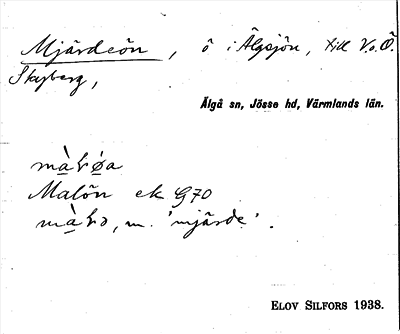 Mjärdeön, ö i Älgsjön, till V. o. Ö.
Skyberg,
Älgå sn, Jösse hd, Värmlands län.
Malön ek G70
m. 'mjärde'.
ELOV SILFORS 1938.